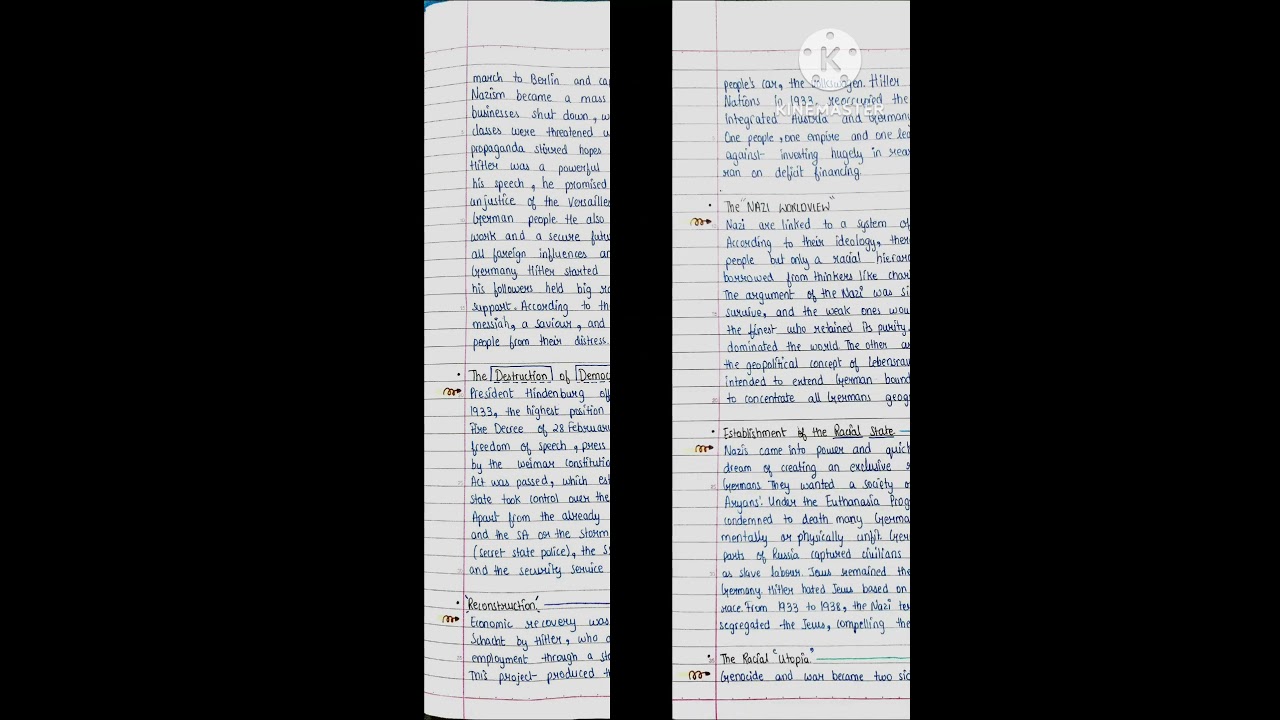 march to Berlin and cap
Nazism became a mass
businesses shut down, w
classes were threatened w
propaganda stirred hopes
Hitler was a powerful
his speech, he promised
injustice of the Versailles
German people He also
work and a secure futu
all foreign influences an
Germany Hitler started
his followers held big ra
support. According to th
messiah, a saviour, and
people from their distress.
• The Destruction of Democ
President Hindenburg off
1933, the highest position
Fire Decree of 28 February
freedom of speech, press
by the weimar constitutio
Act was passed, which est
state took control over the
Apart from the already
and the SA or the storm
(secret state police), the S
and the security service
• 'Reconstruction'
Economic recovery was
Schacht by Hitler, who a
employment through a sta
This project produced th
people's car, the Volkswagen. Hitler
Nations in 1933, reoccupied the
Integrated Austria and Germany
One people, one empire and one lea
against investing hugely in rear
ran on deficit financing.
• The "NAZI WORLDVIEW"
Nazi are linked to a system of
According to their ideology, ther
people but only a racial hierarc
borrowed from thinkers like char
The argument of the Nazi was si
survive, and the weak ones wou
the finest who retained its purity,
dominated the world The other a
the geopolitical concept of Lebensrau
intended to extend German bound
to concentrate all Germans geog
• Establishment of the Racial State
Nazis came into power and quick
dream of creating an exclusive
Germans They wanted a society o
Aryans'. Under the Euthanasia Prog
condemned to death many Germa
mentally or physically unfit. Ger
parts of Russia captured civilians
as slave labour. Jews remained the
Germany. Hitler hated Jews based on
race. From 1933 to 1938, the Nazi ter
segregated the Jews, compelling the
• The Racial "Utopia"
Genocide and war became two sid
K
KINEMASTER